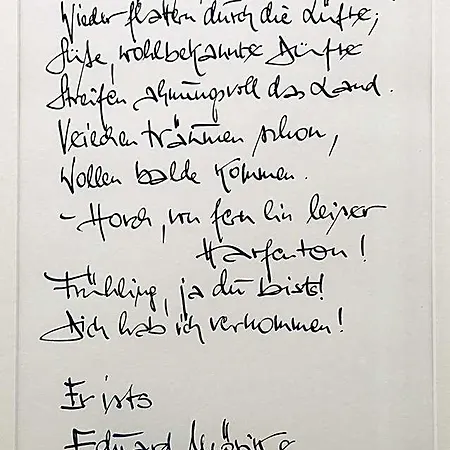 Wieder flattern durch die Lüfte;
Süße, wohlbekannte Düfte
Streifen ahnungsvoll das Land.
Veilchen träumen schon,
Wollen balde kommen.
- Horch, von fern ein leiser
Harfenton!
Frühling, ja du bists!
Dich hab ich vernommen!
Er ists
Eduard Mörike